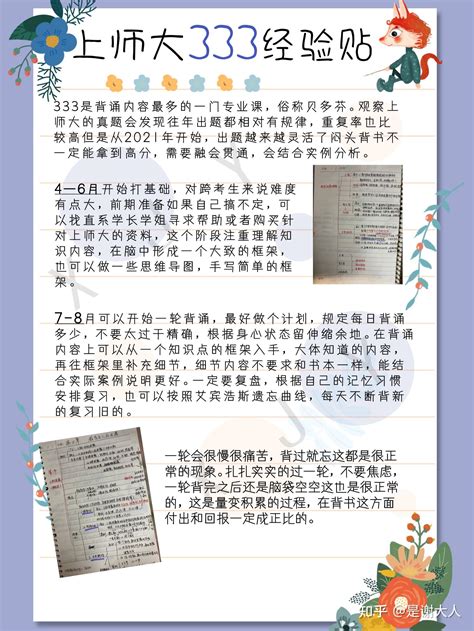 上师大333经验贴
333是背诵内容最多的一门专业课，俗称贝多芬。观察上
师大的真题会发现往年出题都相对有规律，重复率也比
较高但是从2021年开始，出题越来越灵活了闷头背书不
一定能拿到高分，需要融会贯通，会结合实例分析。
4—6月开始打基础，对跨考生来说难度
有点大，前期准备如果自己搞不定，可
以找直系学长学姐寻求帮助或者购买针
对上师大的资料，这个阶段注重理解知
识内容，在脑中形成一个大致的框架，
也可以做一些思维导图，手写简单的框
架。
7-8月可以开始一轮背诵，最好做个计划，规定每日背诵
多少，不要太过干精确，根据身心状态留伸缩余地。在背诵
内容上可以从一个知识点的框架入手，大体知道的内容，
再往框架里补充细节，细节内容不要求和书本一样，能结
合实际案例说明更好。一定要复盘，根据自己的记忆习惯
安排复习，也可以按照艾宾浩斯遗忘曲线，每天不断背新
的复习旧的。
一轮会很慢很痛苦，背过就忘这都是很正
常的现象。扎扎实实的过一轮，不要焦虑，
一轮背完之后还是脑袋空空这也是很正常
的，这是量变积累的过程，在背书这方面
付出和回报一定成正比的。
知乎 @是谢大人